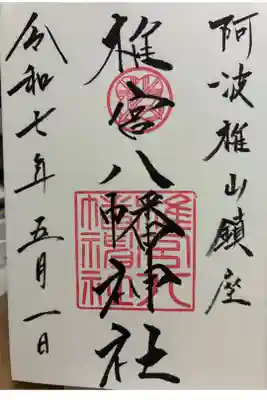 阿波椎山鎮座
椎宮八幡神社
椎宮八
幡神社
令和七年五月一日